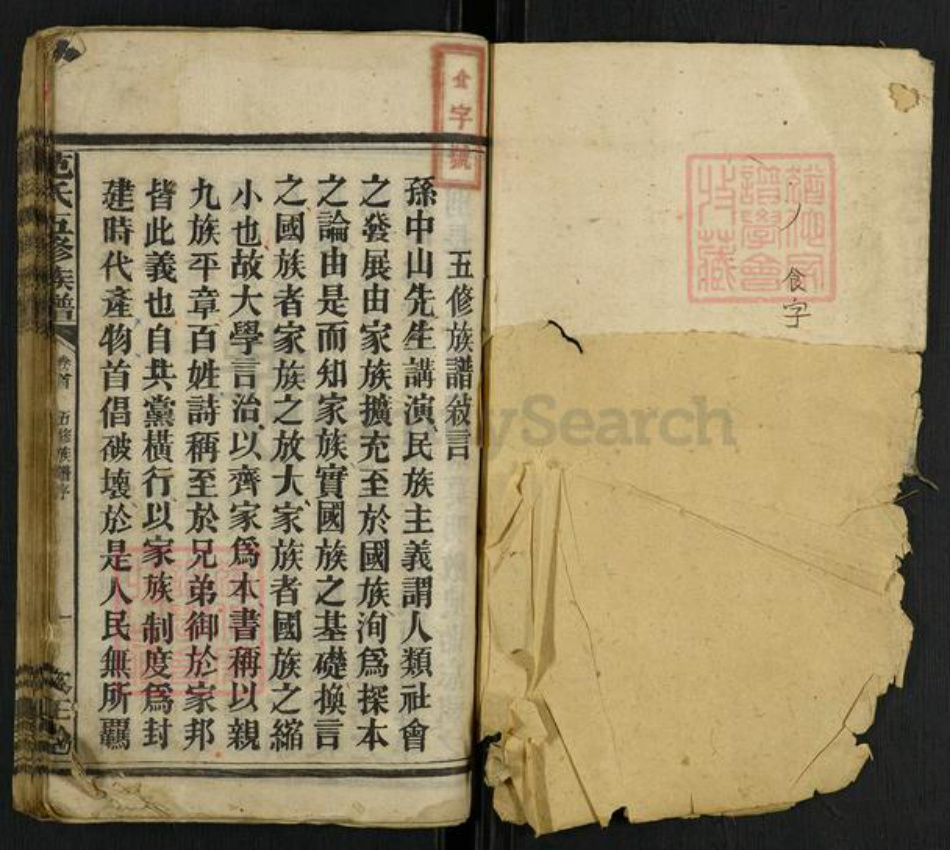 食字
食字號
五修族譜敍言
孫中山先生講演民族主義謂人類社會
之發展由家族擴充至於國族洵爲探本
之論由是而知家族實國族之基礎換言
之國族者家族之放大家族者國族之縮
小也故大學言治以齊家爲本書稱以親
九族平章百姓詩稱至於兄弟御於家邦
皆此義也自共黨橫行以家族制度爲封
建時代產物首倡破壞於是人民無所羈
范氏五修族譜
卷首 五修族譜序
一
MySearch